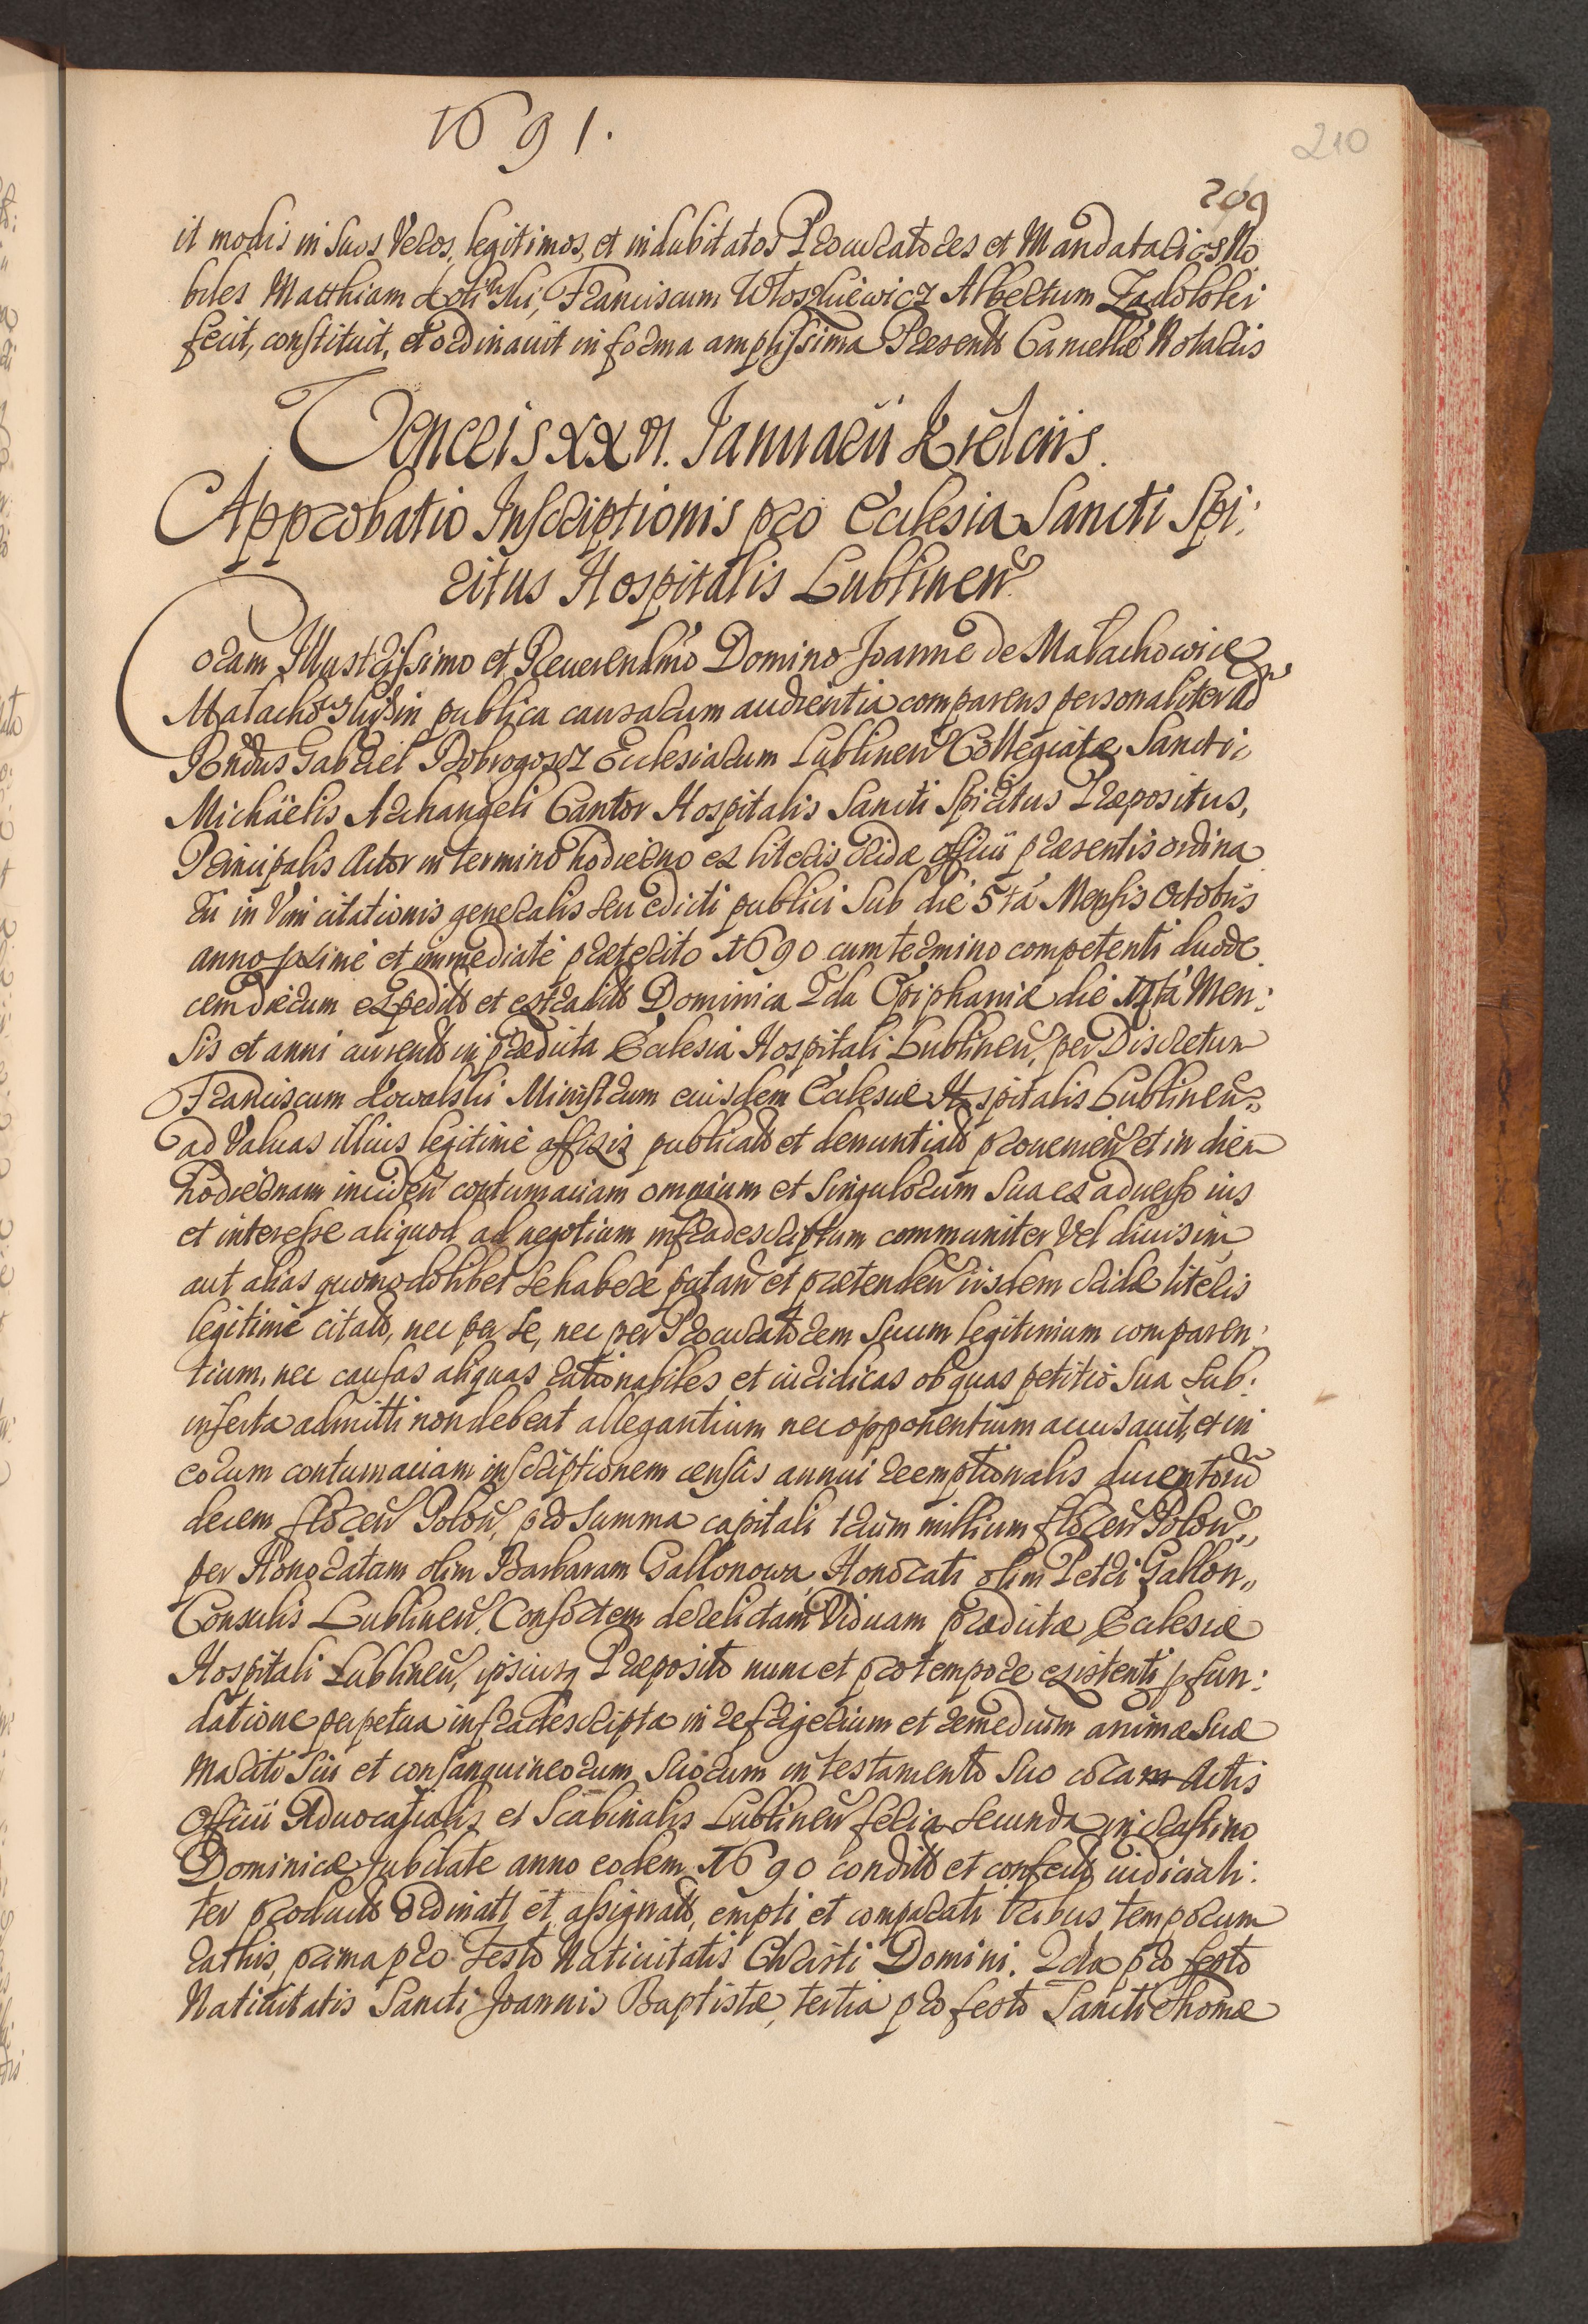 1691.
210
209
it modis in suos veros, legitimos, et indubitatos Procuratores et Mandatarios No
biles Matthiam Franciscum Włoszkiewicz Albertum
fecit, constituit, et ordinavit in forma amplissima Praesentt Cancellae Notariis
Veneris XXVI. Januarii Kielciis.
Approbatio Inscriptionis pro Ecclesia Sancti Spi:
ritus Hospitalis Lublinen
Coram Illustrissimo et Reverendmo Domino Joanne de Malachowice
Malachowski in publica causarum audientia comparens personaliter ad
Rndus Gabriel Dobrogoszcz Ecclesiarum Lublinen Collegiatae Sancti
Michäelis Archangeli Cantor Hospitalis Sancti Spiritus Praepositus,
Principalis Actor in termino hodierno ex literis cridae officii praesentis ordina
rii in vim citationis generalis seu edicti publici sub die 5ta Mensis Octobris
anno proxime et immediate praeterito 1690 cum termino competenti duode
cem dierum expeditt et extraditt Dominica 2da Epiphaniae die Men:
sis et anni currentt in praedicta Ecclesia Hospitali Lublinen, per Discretum
Franciscum Kowalski Ministrum eiusdem Ecclesiae Hospitalis Lublinen,,
ad valvas illius legitime affixis publicatt et denuntiatt provenien et in diem
hodiernam inciden contumaciam omnium et singulorum sua ex adverso ius
et interesse aliquod ad negotium infradescriptum communiter vel divisim
aut alias quomodolibet se habere putan et praetenden iisdem cridae literis
legitime citatt, nec per se, nec per Procuratorem suum legitimum comparen:
tium, nec causas aliquas rationabiles et iuridicas ob quas petitio sua sub:
inserta admitti non debeat allegantium nec opponentium accusavit, et in
eorum contumaciam inscriptionem census annui reemptionalis ducentorum
decem floren Polon, pro summa capitali trium millium floren Polon,,
per Honoratam olim Barbaram Gallonowa Honorati olim Petri Gallon,,
Consulis Lublinen, Consortem derelictam Viduam praedictae Ecclesiae
Hospitali Lublinen, ipsiusq Praeposito nunc et pro tempore existenti p fun:
datione perpetua infradescripta in refrigerium et remedium animae suae
mariti sui et consanguineorum suorum in testamento suo coram Actis
Officii Advocatialis et Scabinalis Lublinen feria secunda in crastino
Dominicae Jubilate anno eodem 1690 conditt et confectt iudiciali:
ter productt ordinatt et assignatt, empti et comparati tribus temporum
rathis, prima pro festo Nativitatis Christi Domini, 2da pro festo
Nativitatis Sancti Joannis Baptistae, tertia pro festo Sancti Thomae